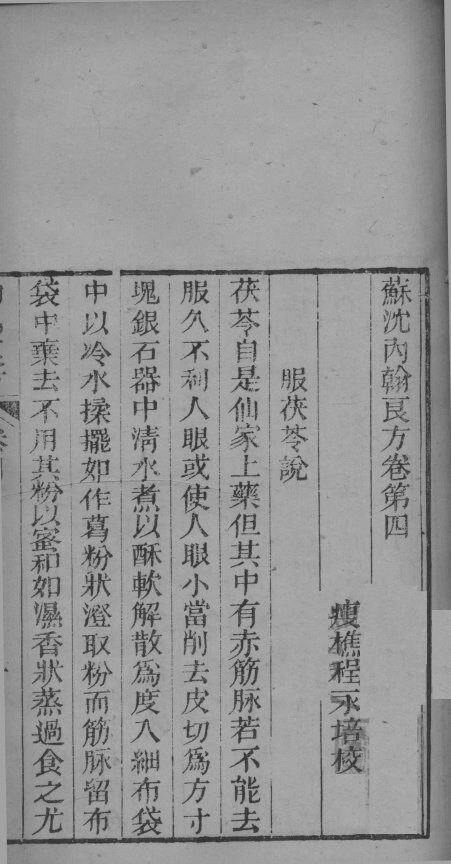 蘇沈內翰良方卷第四
瘦樵程永培校
服茯苓說
茯苓自是仙家上藥但其中有赤筋脉若不能去
服久不利人眼或使人眼小當削去皮切爲方寸
塊銀石器中清水煮以酥軟解散爲度入細布袋
中以冷水揉擺如作葛粉狀澄取粉而筋脉留布
袋中棄去不用其粉以蜜和如濕香狀蒸過食之尤